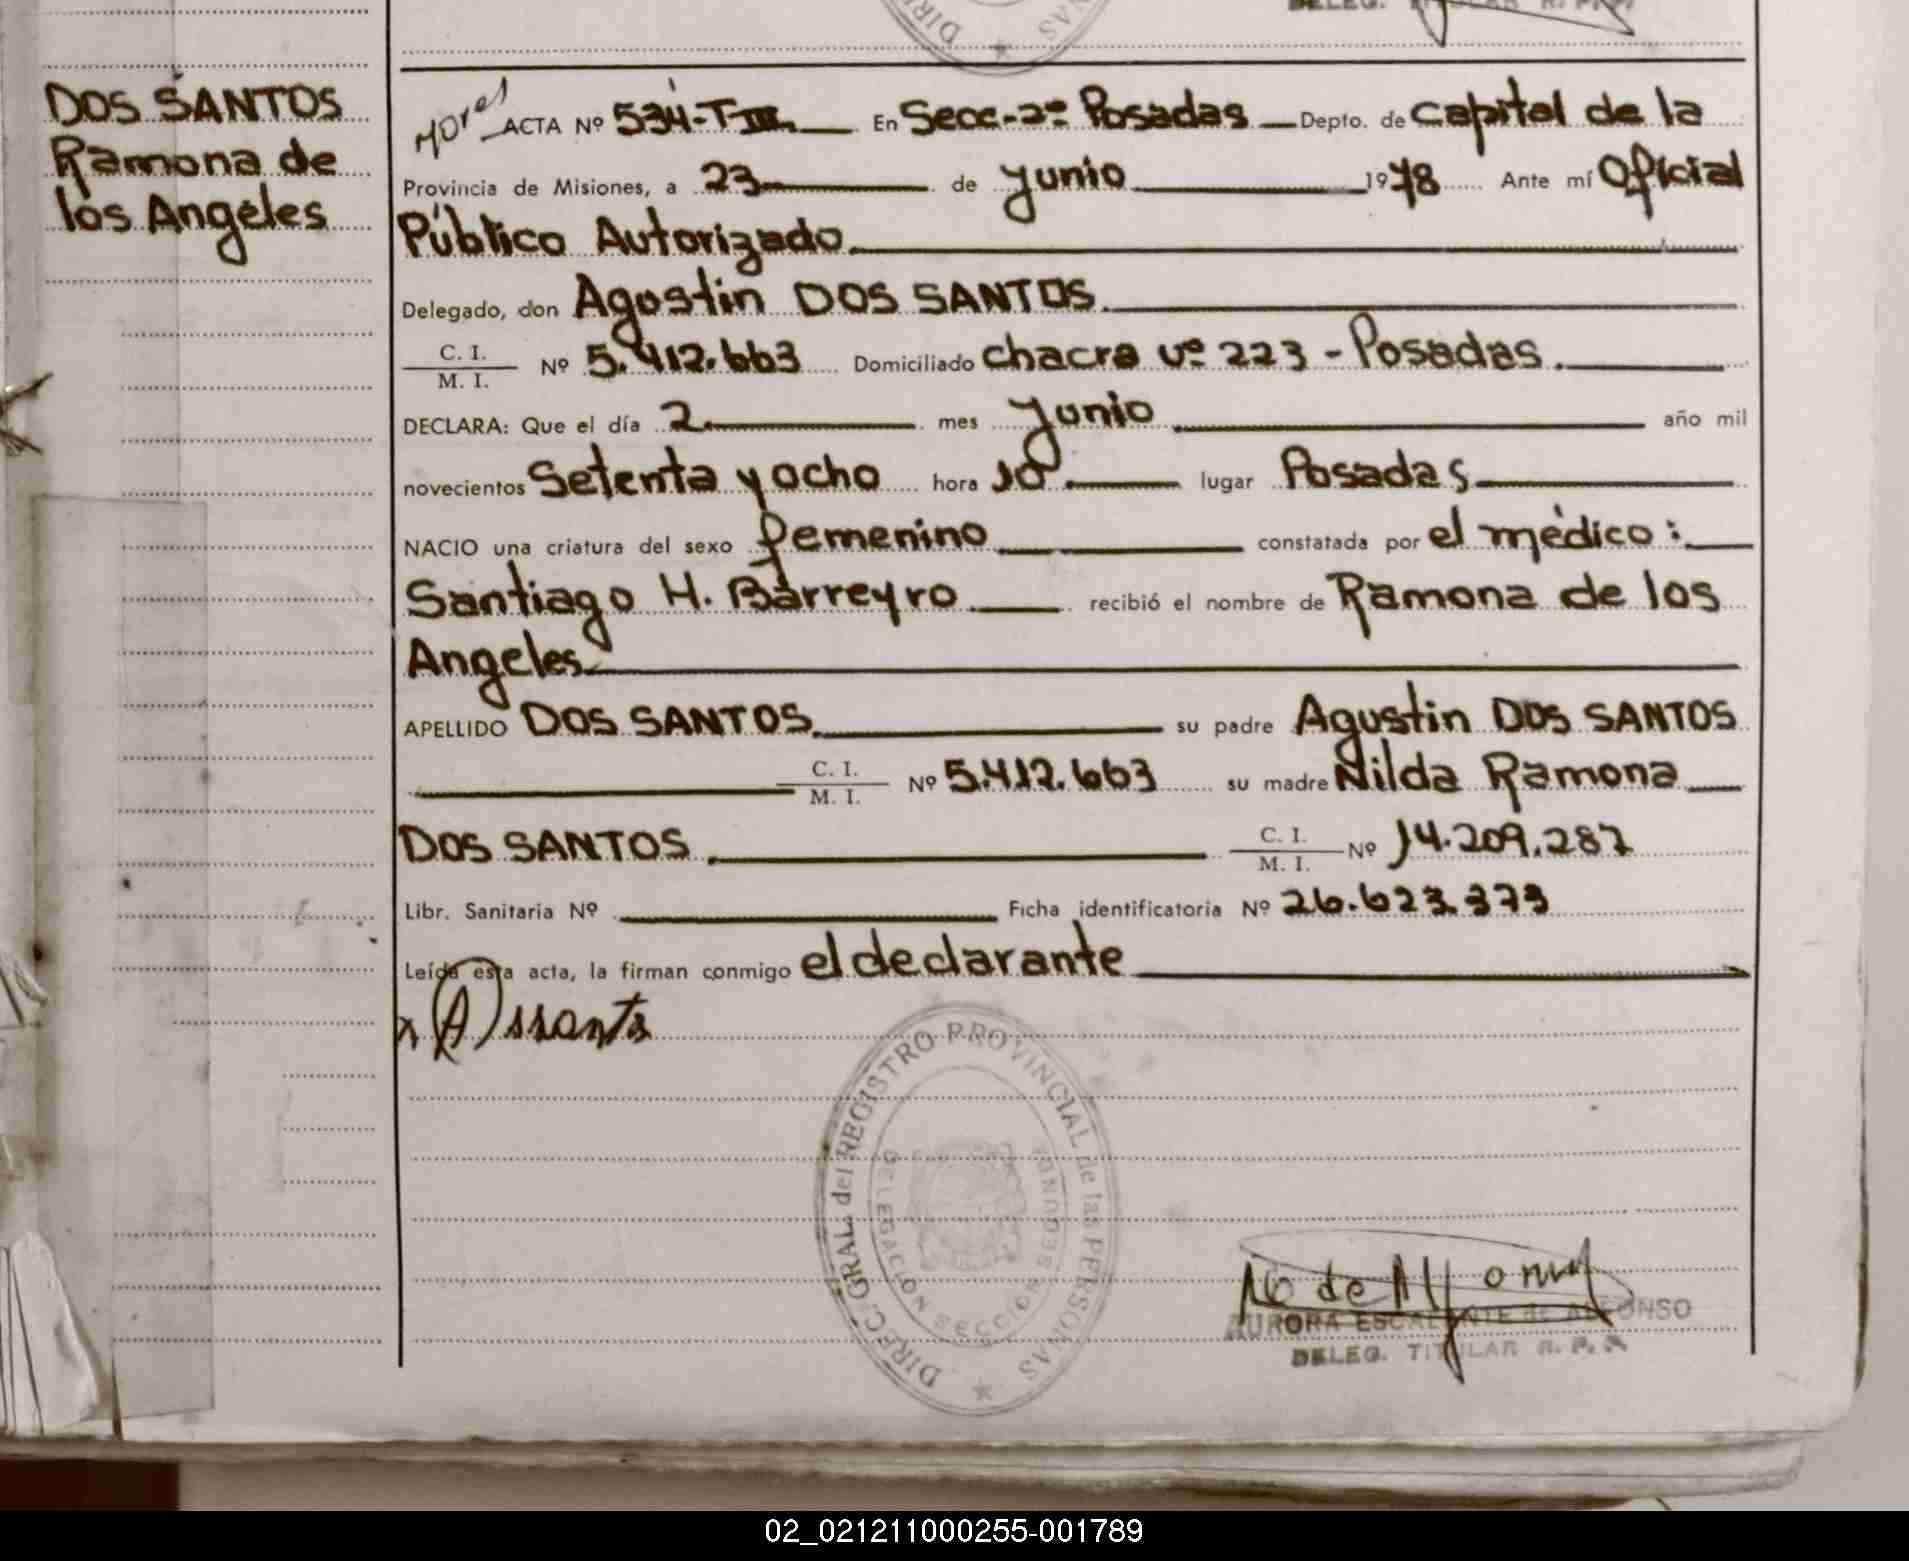 DELEG. TITULAR R. P. P.
DOS SANTOS
Ramona de
los Angeles
ACTA Nº 534-T-III. En Secc-2º Posadas Depto. de Capital de la
Provincia de Misiones, a 23 de junio 1978 Ante mí Oficial
Público Autorizado.
Delegado, don Agostin DOS SANTOS.
C. I.
M. I. Nº 5.412.663 Domiciliado chacra Nº 223 - Posadas.
DECLARA: Que el día 2 mes junio año mil
novecientos Setenta y ocho hora 10 lugar Posadas
NACIO una criatura del sexo femenino constatada por el médico:
Santiago H. Barreyro recibió el nombre de Ramona de los
Angeles
APELLIDO DOS SANTOS. su padre Agustin DOS SANTOS
C. I.
M. I. Nº 5.412.663 su madre Nilda Ramona
DOS SANTOS C. I.
M. I. Nº 14.209.287
Libr. Sanitaria Nº Ficha identificatoria Nº 26.623.373
Leída esta acta, la firman conmigo el declarante
DIREC. GRAL. del REGISTRO PROVINCIAL de las PERSONAS
DELEGACION SECCION SEGUNDA
AURORA ESCALANTE de ALFONSO
DELEG. TITULAR R. P. P.
02_021211000255-001789